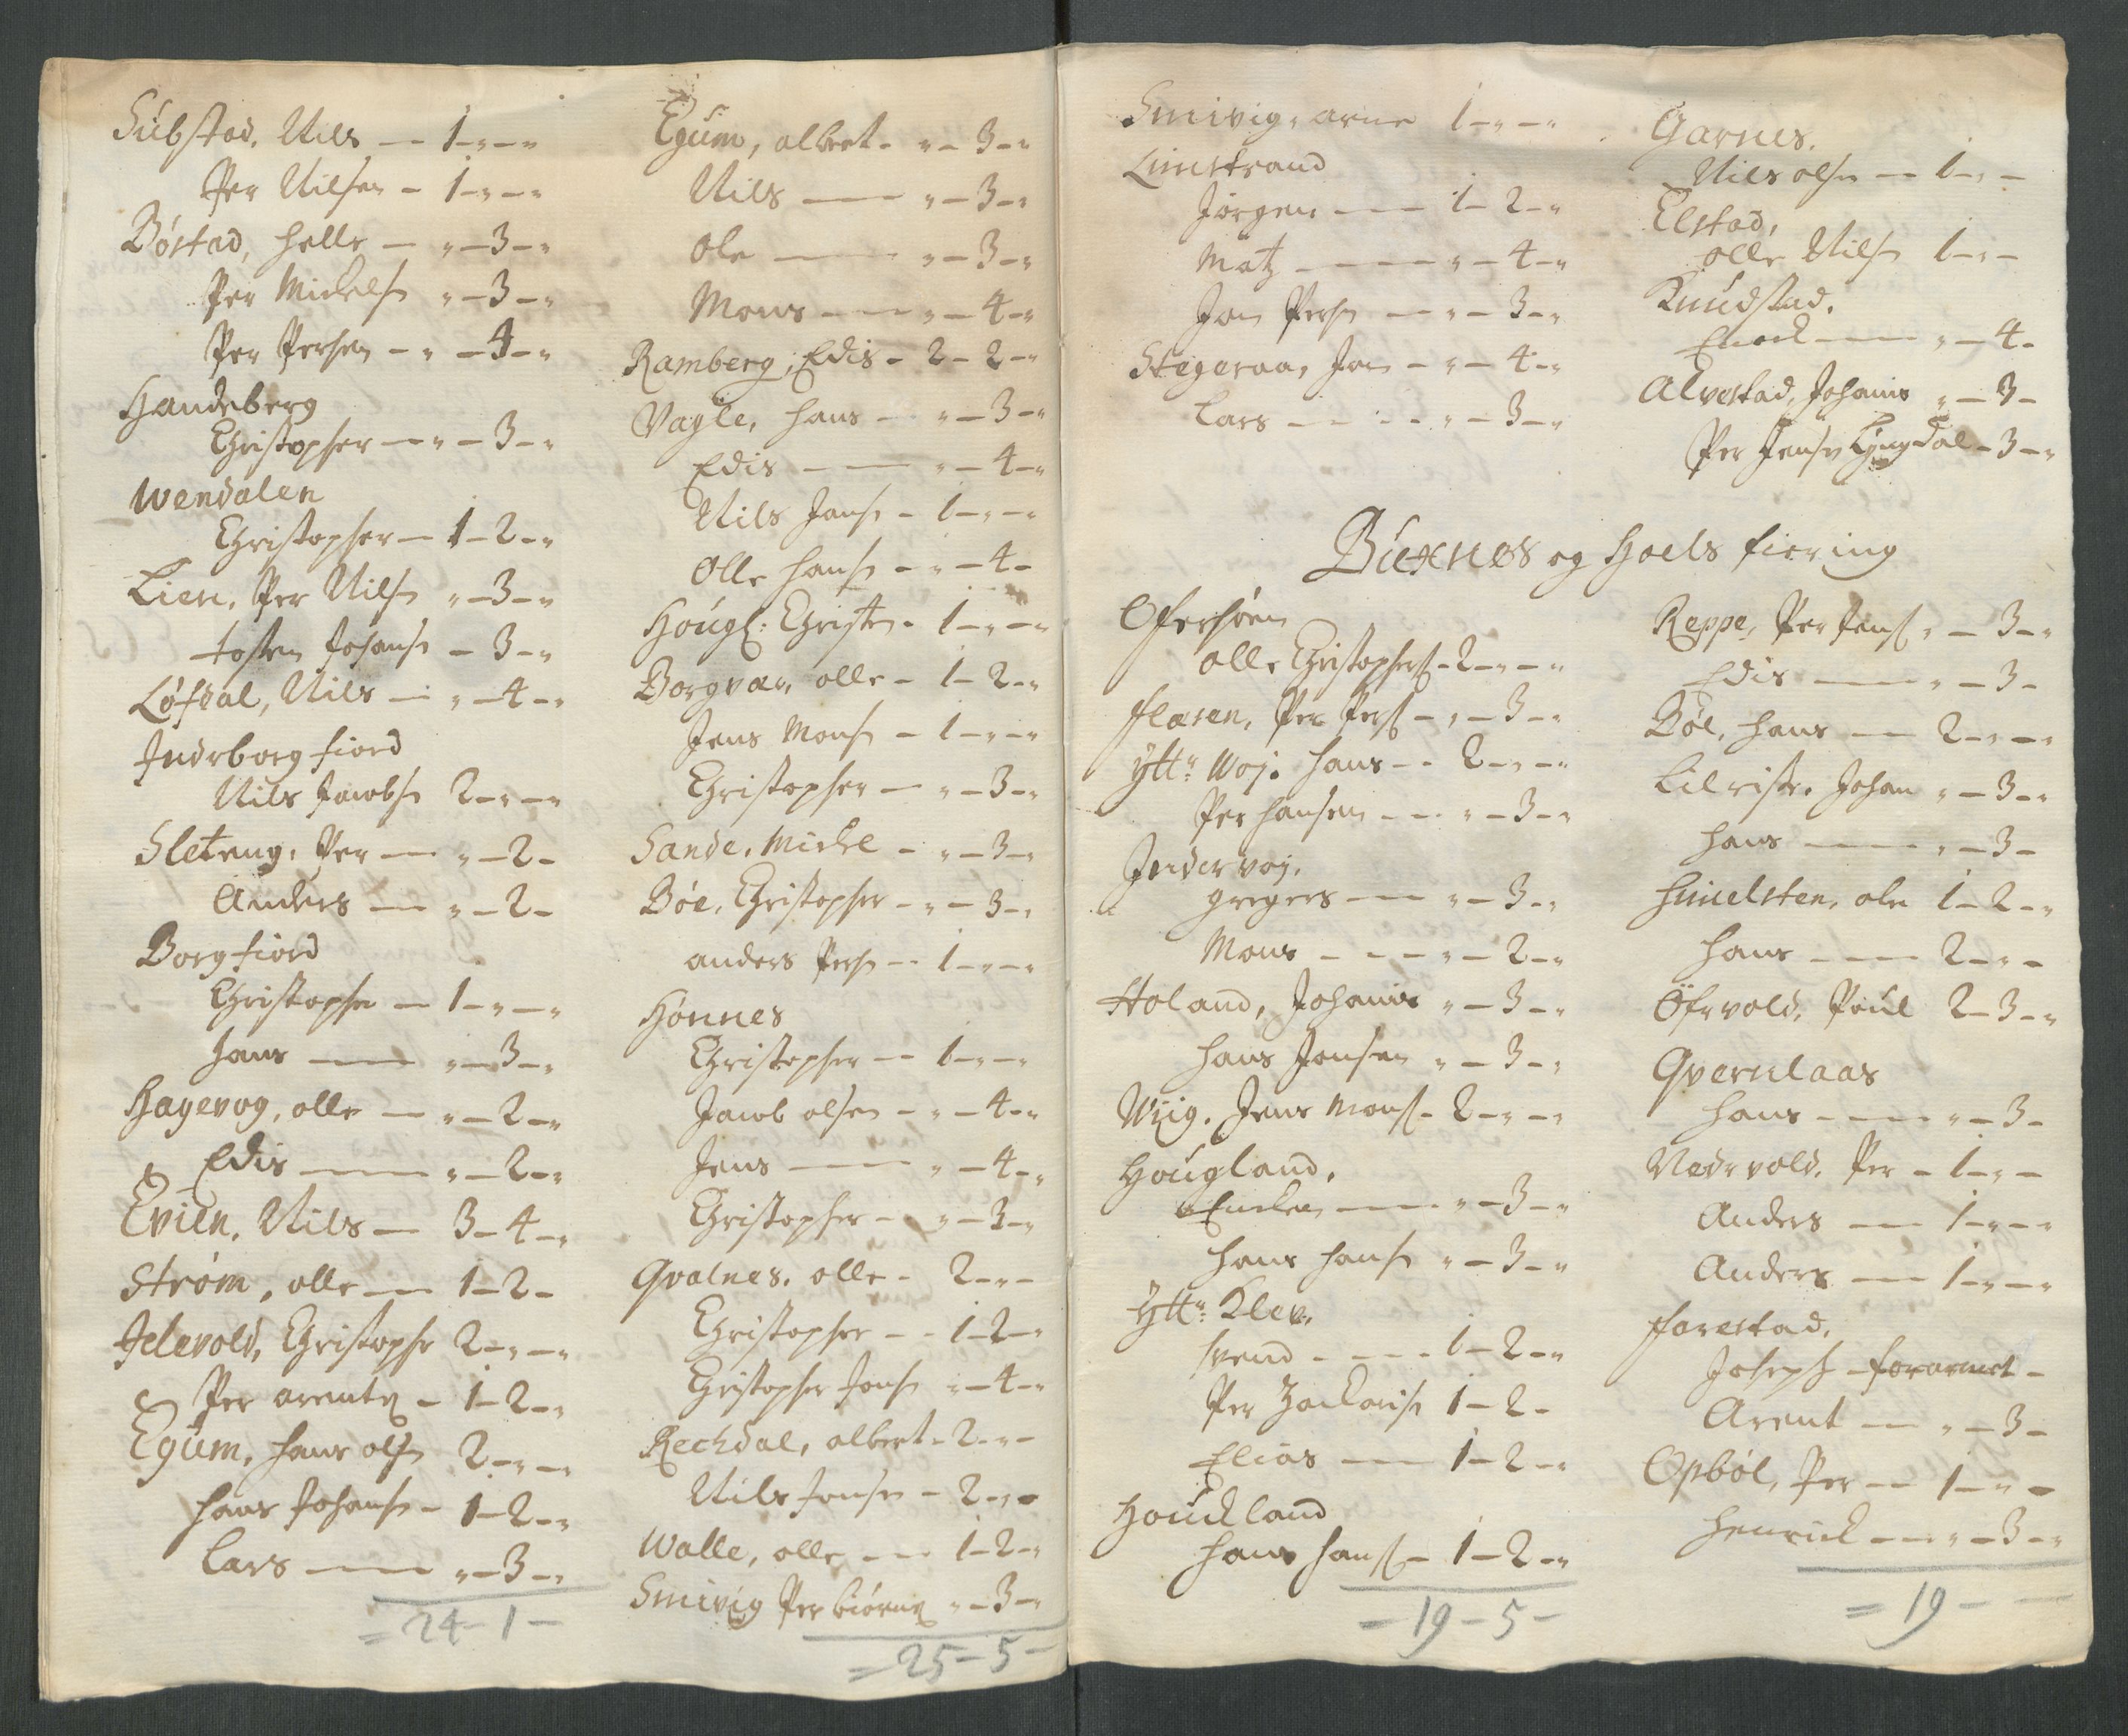 Sübstad, Nils — 1-"-"
Per Nilsen - 1-"-"
Böstad, Helle — "-3-"
Per Michelsn "-3-"
Per Persen - "-4-"
Handeberg
Christopher — "-3-"
Wendalen
Christopher — 1-2-"
Lien, Per Nilsn "-3-"
tosten Johansn - 3-"
Löfdal, Nils — "-4-"
Indrborgfiord
Nils Jacobsn 2-"-"
Sleteng, Per — "-2-
Anders — "-2-
Borgfiord
Christopher — 1-"-"
Hans — "-3-"
Hagevog, olle — "-2-"
Edis — "-2-"
Evien, Nils — 3-4-"
Ström, olle — 1-2-
Jelevold, Christophr 2-"-"
Per arentz - 1-2-"
Egum, hans olsn 2-"-"
hans Johansn - 1-2-"
Lars — "-3-"
= 24-1-
Egüm, albret - "-3-"
Nils — "-3-"
Ole — "-3-"
Mons — "-4-"
Ramberg, Edis - 2-2-"
Vagle, hans — "-3-"
Edis — "-4-"
Nils Jansn - 1-"-"
Olle hansn - "-4-
Hougl: Christen - 1-"-"
Borgvar, olle - 1-2-"
Jens Monsn - 1-"-"
Christopher — "-3-"
Sande, Michel - "-3-"
Böe, Christopher - "-3-"
anders Persn - 1-"-"
Honnes
Christopher — 1-"-"
Jacob olsen - "-4-"
Jens — "-4-"
Christopher - "-3-"
Qvalnes, olle - 2-"-
Christopher - - 1-2-"
Christopher Jonsn "-4-"
Rechdal, albret - 2-"-
Nils Jonsen - 2-"-
Walle, olle — 1-2-"
Smivig Per biörnz "-3-"
= 25-5-
Smivig, arne 1-"-"
Limstrand
Jörgen — 1-2-"
Matz — "-4-"
Jon Persn — "-3-"
Stegeraa, Jon - "-4-"
Lars - - - "-3-"
Garnes,
Nils olsn — 1-"-
Elstad,
olle Nilsn 1-"-
Knudstad,
Enock — "-4-
Alvestad, Johanis "-3-
Per Jensn Lyngdal - 3-"
Buxnes og Hoels fiering
Ofersöen
olle Christophers - 2-"-"
flæsen, Per Pers - "-3-"
Ytt: Woj. hans - - 2-"-"
Per hansen - - "-3-"
Indervoj,
gregers — "-3-"
Mons - - - "-2-"
Holand, Johanis "-3-"
hans Jonsen "-3-"
Wiig, Jens Mons - 2-"-"
Hougland,
— "-3-"
hans hansn "-3-"
Ytt: Klev,
svend - - - 1-2-"
Per Zachrisn 1-2-
Elias — 1-2-"
Houckland
hans hans - 1-2-"
- 19-5-
Reppe, Per Jens, "-3-"
Edis — "-3-
Böe, hans — 2-"-"
Lilriste, Johan "-3-"
hans — "-3-
himelsten, ole 1-2-"
hans — 2-"-
Öfrvold, Poul 2-3-"
Qvernlaas
hans — "-3-
Nedrvold, Per - 1-"-
Anders — 1-"-"
Anders — 1-"-"
farestad,
Joseph - forarmet -
Arent — "-3-
Opböl, Per — 1-"-
Henrick — "-3-"
= 19 - -